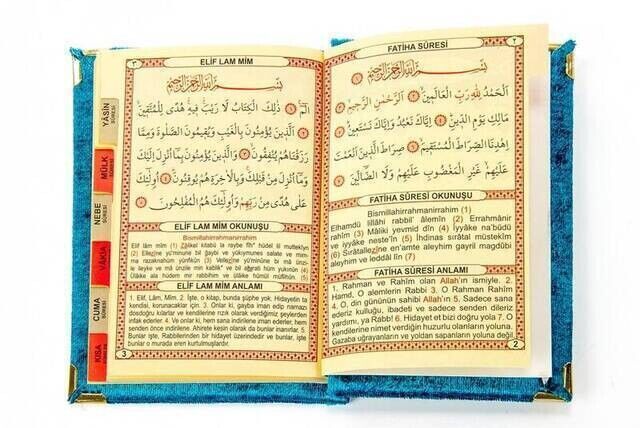 FATİHA SÛRESİ
٢
بِسْمِ اللّٰهِ الرَّحْمٰنِ الرَّحِيمِ
اَلْحَمْدُ لِلّٰهِ رَبِّ الْعَالَمِينَ اَلرَّحْمٰنِ الرَّحِيمِ
مَالِكِ يَوْمِ الدِّينِ اِيَّاكَ نَعْبُدُ وَاِيَّاكَ نَسْتَعِينُ
اِهْدِنَا الصِّرَاطَ الْمُسْتَقِيمَ صِرَاطَ الَّذِينَ اَنْعَمْتَ
عَلَيْهِمْ غَيْرِ الْمَغْضُوبِ عَلَيْهِمْ وَلَا الضَّالِّينَ
FATİHA SÛRESİ OKUNUŞU
Bismillahirrahmanirrahim (1)
Elhamdü lillâhi rabbil' âlemîn (2) Errahmânir
rahîm (3) Mâliki yevmid dîn (4) İyyâke na'büdü
ve iyyâke neste'în (5) İhdinas sırâtal müstekîm
(6) Sırâtallezîne en'amte aleyhim gayril magdûbi
aleyhim ve leddâl lîn (7)
FATİHA SÛRESİ ANLAMI
1. Rahman ve Rahim olan Allah'ın ismiyle. 2.
Hamd, O alemlerin Rabbi 3. O Rahman Rahim
4. O, din gününün sahibi Allah'ın 5. Sadece sana
ederiz kulluğu, ibadeti ve sadece senden dileriz
yardımı, ya Rabb! 6. Hidayet et bizi doğru yola 7. O
kendilerine nimet verdiğin huzurlu olanların yoluna.
Gazaba uğrayanların ve yoldan sapanların yoluna değil.
2
ELİF LAM MİM
٣
بِسْمِ اللّٰهِ الرَّحْمٰنِ الرَّحِيمِ
الٓمٓ ذٰلِكَ الْكِتَابُ لَا رَيْبَ فِيهِ هُدًى لِلْمُتَّقِينَ
اَلَّذِينَ يُؤْمِنُونَ بِالْغَيْبِ وَيُقِيمُونَ الصَّلٰوةَ وَمِمَّا
رَزَقْنَاهُمْ يُنْفِقُونَ وَالَّذِينَ يُؤْمِنُونَ بِمَا اُنْزِلَ اِلَيْكَ
وَمَا اُنْزِلَ مِنْ قَبْلِكَ وَبِالْاٰخِرَةِ هُمْ يُوقِنُونَ اُولٰئِكَ
عَلٰى هُدًى مِنْ رَبِّهِمْ وَاُولٰئِكَ هُمُ الْمُفْلِحُونَ
ELİF LAM MİM OKUNUŞU
Bismillahirrahmanirrahim
Elif lâm mîm (1) Zâlikel kitabü la raybe fîh* hüdel lil muttekîyn
(2) Ellezîne yü'minune bil ğaybi ve yükıymunes salate ve mim-
ma razaknahüm yünfikûn (3) Vellezîne yü'minune bi mâ ünzi-
le ileyke ve mâ ünzile min kablik* ve bil ahırati hüm yukınûn (4)
Ülâike ala hüdem mir rabbihim ve ülâike hümül müflihûn (5)
ELİF LAM MİM ANLAMI
1. Elif, Lâm, Mîm. 2. İşte, o kitap, bunda şüphe yok, Hidayetin ta
kendisi, korunacaklar için. 3. Onlar ki, gayba iman edip namazı
dosdoğru kılarlar ve kendilerine rızık olarak verdiğimiz şeylerden
infak ederler. 4. Ve onlar ki, hem sana indirilene iman ederler, hem
senden önce indirilene. Ahirete kesin olarak da bunlar inanırlar. 5.
Bunlar işte, Rabbilerinden bir hidayet üzerindedir ve bunlar, işte
bunlar o murada eren kurtulmuşlardır.
3
YÂSİN
SÛRESİ
MÜLK
SÛRESİ
NEBE
SÛRESİ
VAKIA
CUMA
SÛRESİ
KISA